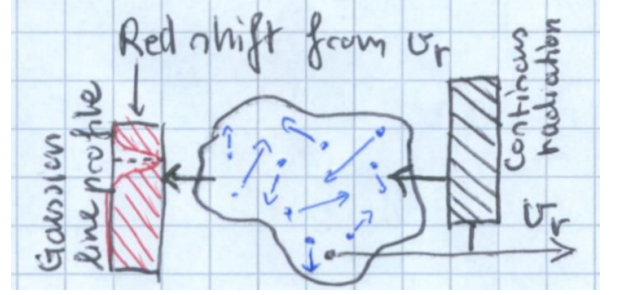 Red shift from υr
Gaussian
line profile
continous
radiation
υr